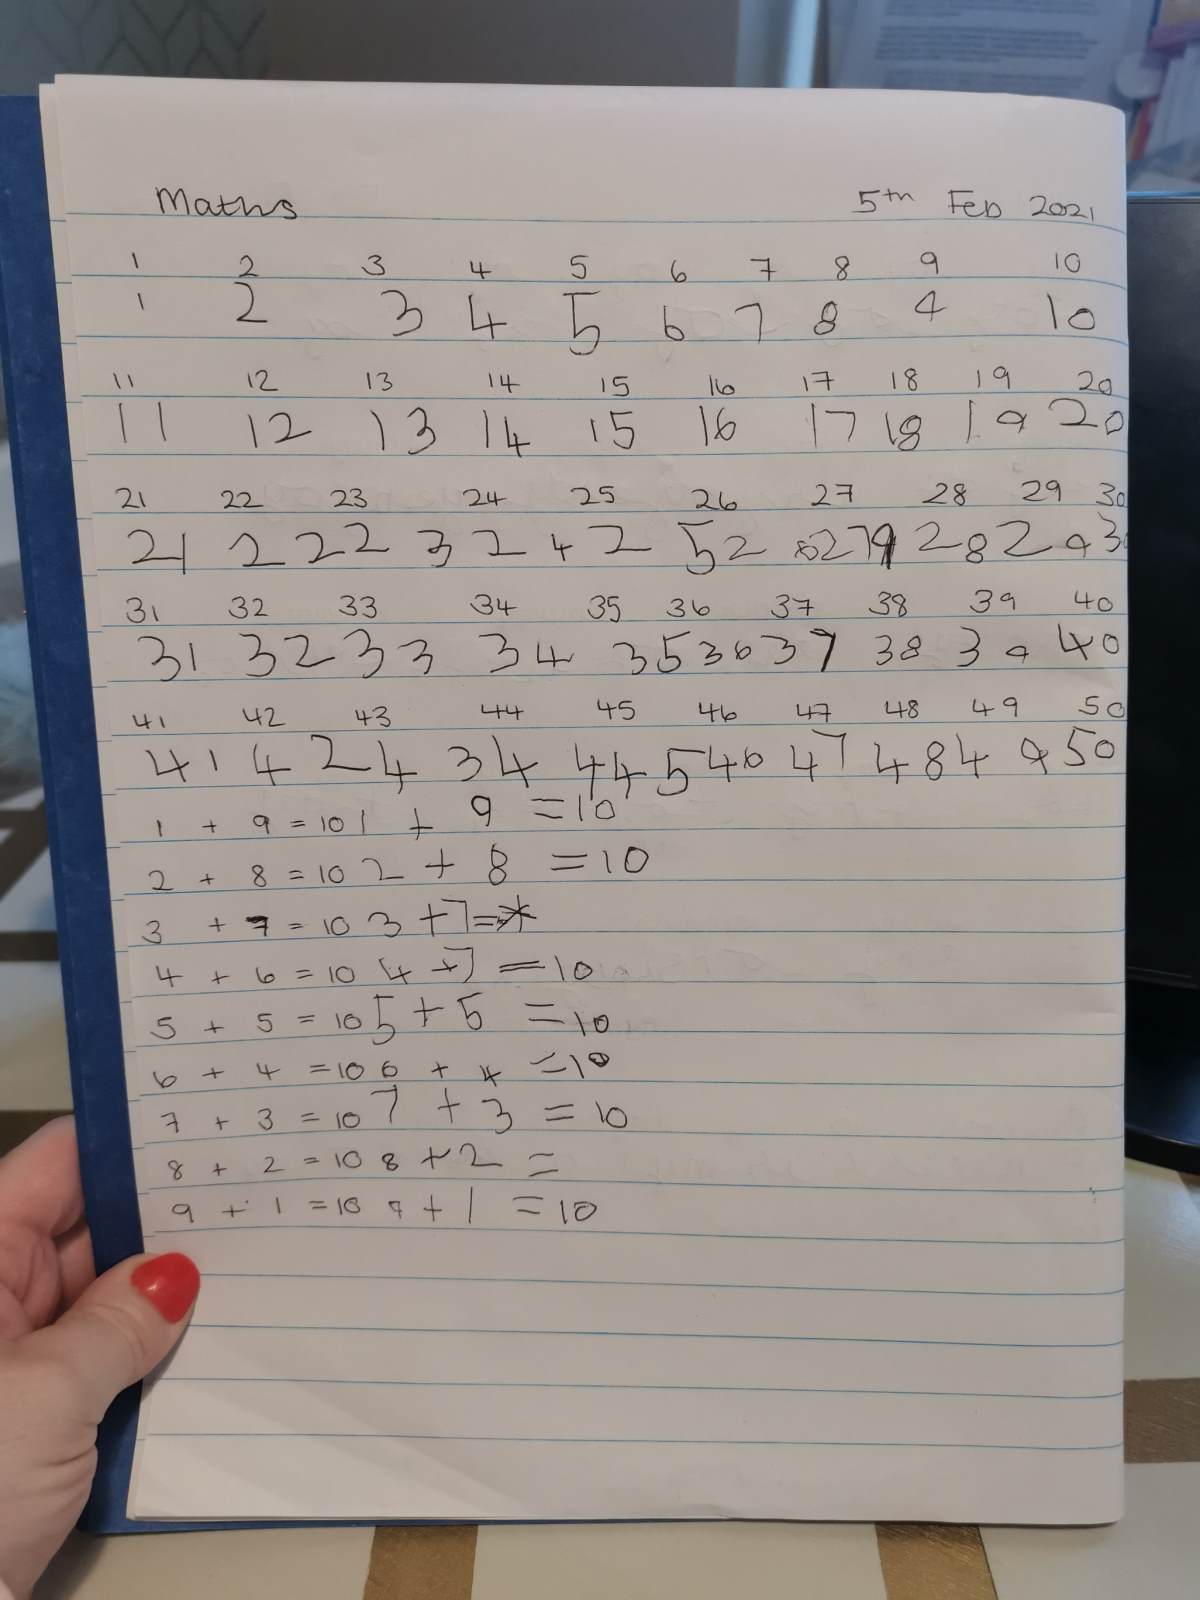 Maths 5th Feb 2021
1 2 3 4 5 6 7 8 9 10
1 2 3 4 5 6 7 8 9 10
11 12 13 14 15 16 17 18 19 20
11 12 13 14 15 16 17 18 19 20
21 22 23 24 25 26 27 28 29 30
21 22 23 24 25 28 29 30
31 32 33 34 35 36 37 38 39 40
31 32 33 34 35 36 37 38 39 40
41 42 43 44 45 46 47 48 49 50
41 42 43 44 45 46 47 48 49 50
1 + 9 = 10 1 + 9 = 10
2 + 8 = 10 2 + 8 = 10
3 + 7 = 10 3 + 7 =
4 + 6 = 10 4 + 7 = 10
5 + 5 = 10 5 + 5 = 10
6 + 4 = 10 6 + 4 = 10
7 + 3 = 10 7 + 3 = 10
8 + 2 = 10 8 + 2 =
9 + 1 = 10 9 + 1 = 10